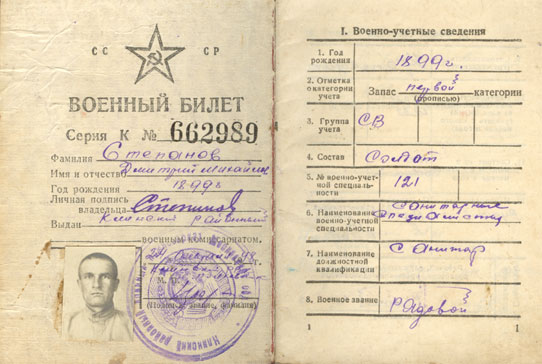 СС СР
ВОЕННЫЙ БИЛЕТ
Серия К № 662989
Фамилия Степанов
Имя и отчество Дмитрий
Год рождения 1899г
Личная подпись
владельца
Выдан Клинский районный
военным комиссариатом.
I. Военно-учетные сведения
1. Год рождения 1899г.
2. Отметка о категории учета Запас первой категории
(прописью)
3. Группа учета СВ
4. Состав солдат
5. № военно-учетной специальности 121
6. Наименование военно-учетной специальности санитарные
7. Наименование должностной квалификации Санитар
8. Военное звание Рядовой
1
1